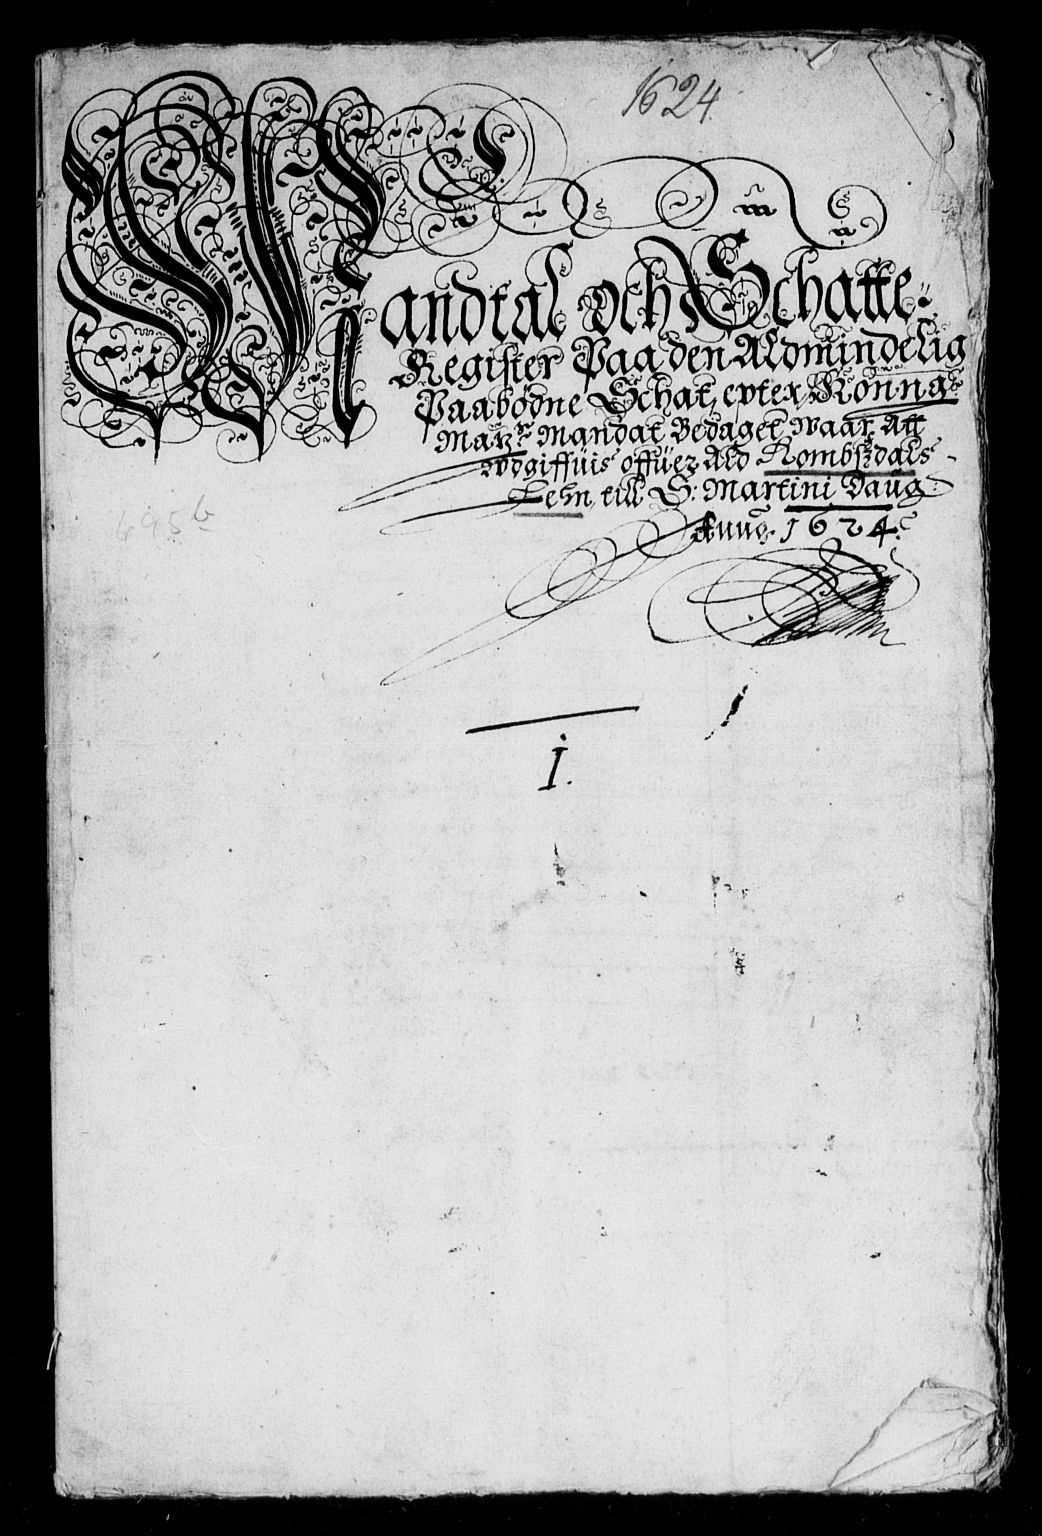 1624
Mandtal och Schatte-
Register Paa den Aldmindelig
Paabodne Schat, epter Konng:
Maÿ:ts Mandat Bedaget waar, Att
wdgiffüis offüer Ald Rombßdals-
Lehn, till S: Martini Daug
Anno. 1624.
6956
I.